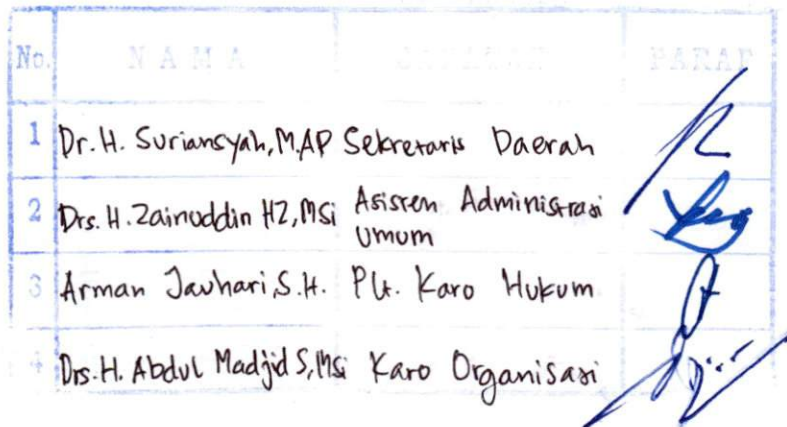 No. NAMA JABATAN PARAF
1 Dr. H. Suriansyah, M.AP Sekretaris Daerah
2 Drs. H. Zainuddin HZ, MSi Asisten Administrasi
Umum
3 Arman Jauhari, S.H. Plt. Karo Hukum
4 Drs. H. Abdul Madjid S, MSi Karo Organisasi